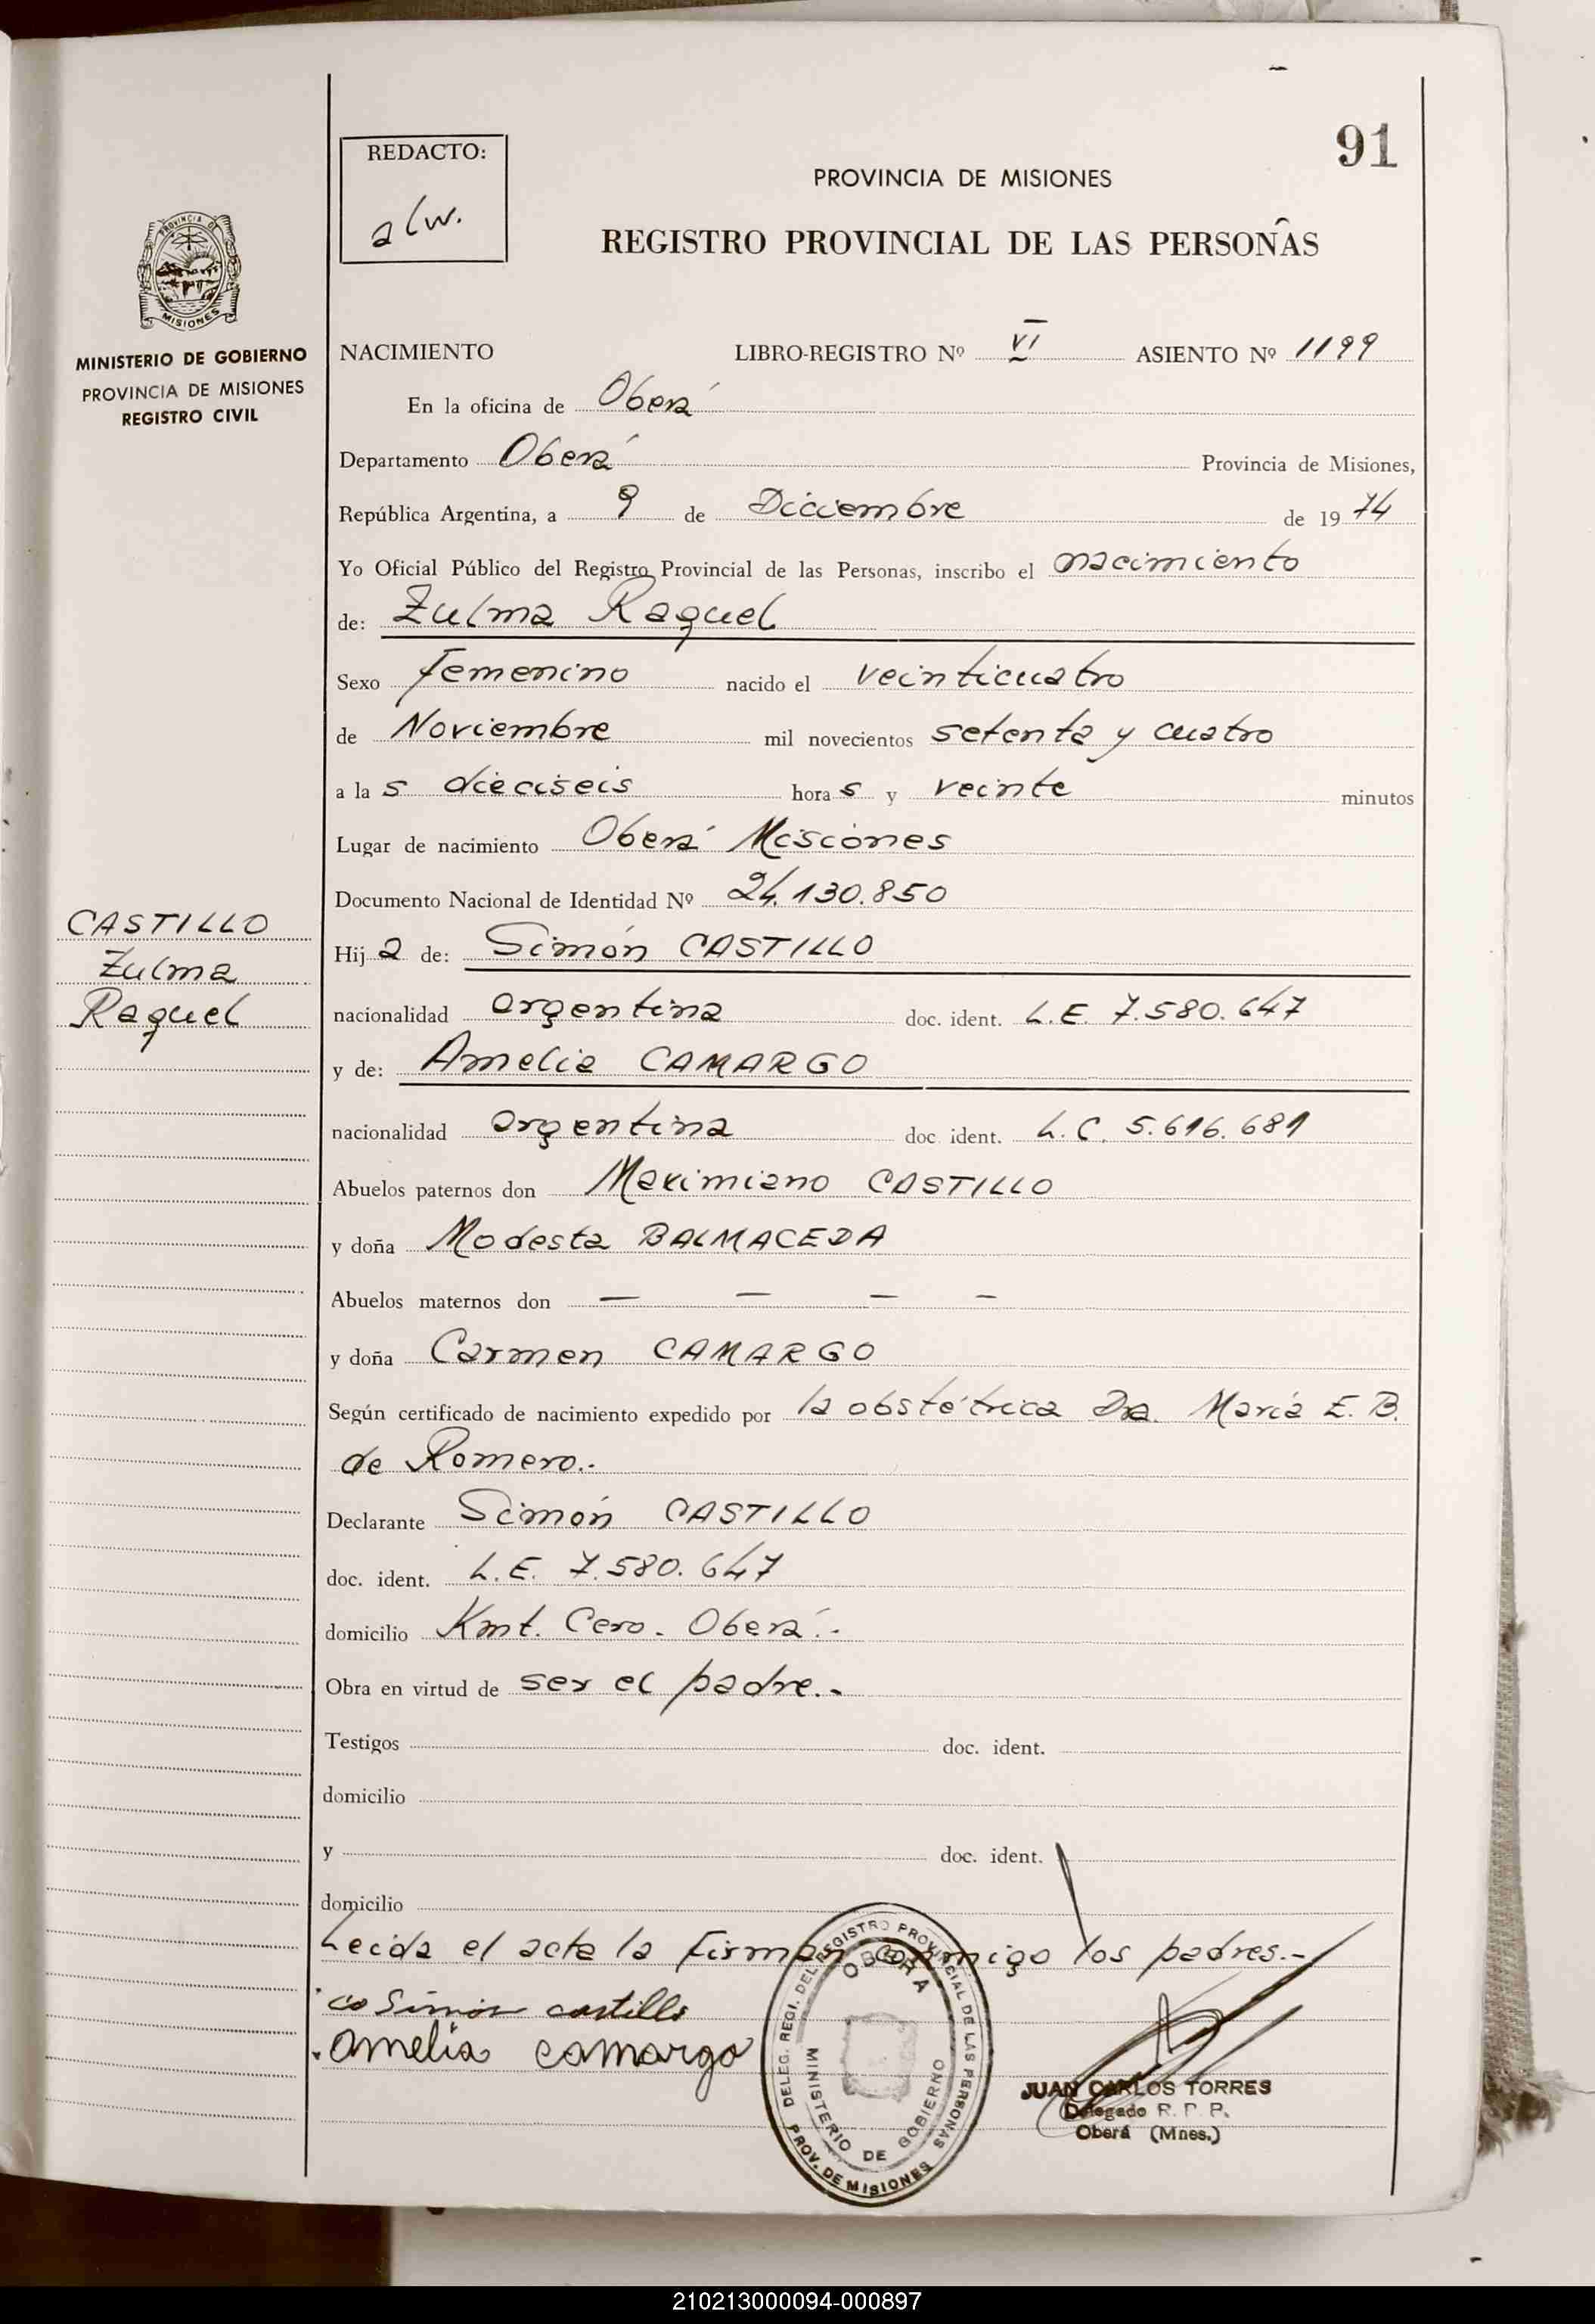 91
REDACTO:
alw.
PROVINCIA DE MISIONES
REGISTRO PROVINCIAL DE LAS PERSONAS
PROVINCIA DE
MISIONES
MINISTERIO DE GOBIERNO
PROVINCIA DE MISIONES
REGISTRO CIVIL
NACIMIENTO LIBRO-REGISTRO Nº VI ASIENTO Nº 1199
En la oficina de Oberá
Departamento Oberá Provincia de Misiones,
República Argentina, a 9 de Diciembre de 1974
Yo Oficial Público del Registro Provincial de las Personas, inscribo el nacimiento
de: Zulma Raquel
Sexo femenino nacido el veinticuatro
de Noviembre mil novecientos setenta y cuatro
a las dieciseis horas y veinte minutos
Lugar de nacimiento Oberá Misiones
Documento Nacional de Identidad Nº 24.130.850
CASTILLO
Zulma
Raquel
Hija de: Simón CASTILLO
nacionalidad argentina doc. ident. L.E. 7.580.647
y de: Amelia CAMARGO
nacionalidad argentina doc. ident. L.C. 5.616.681
Abuelos paternos don Maximiano CASTILLO
y doña Modesta BALMACEDA
Abuelos maternos don — — — —
y doña Carmen CAMARGO
Según certificado de nacimiento expedido por la obstétrica Dra. María E. B.
de Romero.-
Declarante Simón CASTILLO
doc. ident. L.E. 7.580.647
domicilio Kmt. Cero. Oberá.-
Obra en virtud de ser el padre.-
Testigos doc. ident.
domicilio
y doc. ident.
domicilio
Leida el acta la firman conmigo los padres.-
Simón castillo
amelia camargo
DELEG. REGI. DEL REGISTRO PROVINCIAL DE LAS PERSONAS
OBERA
MINISTERIO DE GOBIERNO
PROV. DE MISIONES
JUAN CARLOS TORRES
Delegado R. P. P.
Oberá (Mnes.)
210213000094-000897